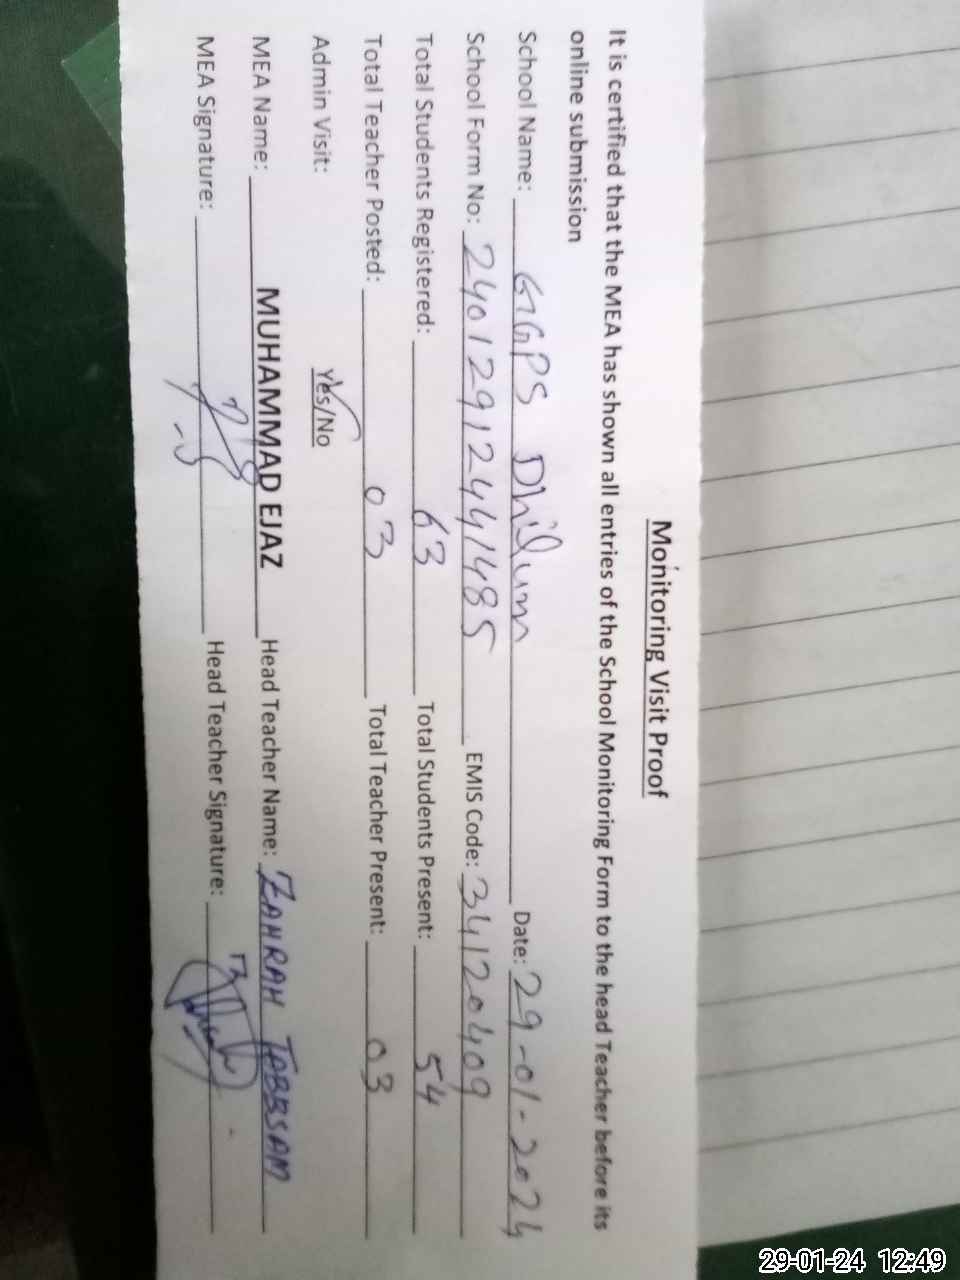 Monitoring Visit Proof
It is certified that the MEA has shown all entries of the School Monitoring Form to the head Teacher before its
online submission
School Name: GGPS Dhilum Date: 29-01-2024
School Form No: 24012912441485 EMIS Code: 34120409
Total Students Registered: 63 Total Students Present: 54
Total Teacher Posted: 03 Total Teacher Present: 03
Admin Visit: Yes/No
MEA Name: MUHAMMAD EJAZ Head Teacher Name: ZAHRAH TABBSAM
MEA Signature: Head Teacher Signature:
29-01-24 12:49